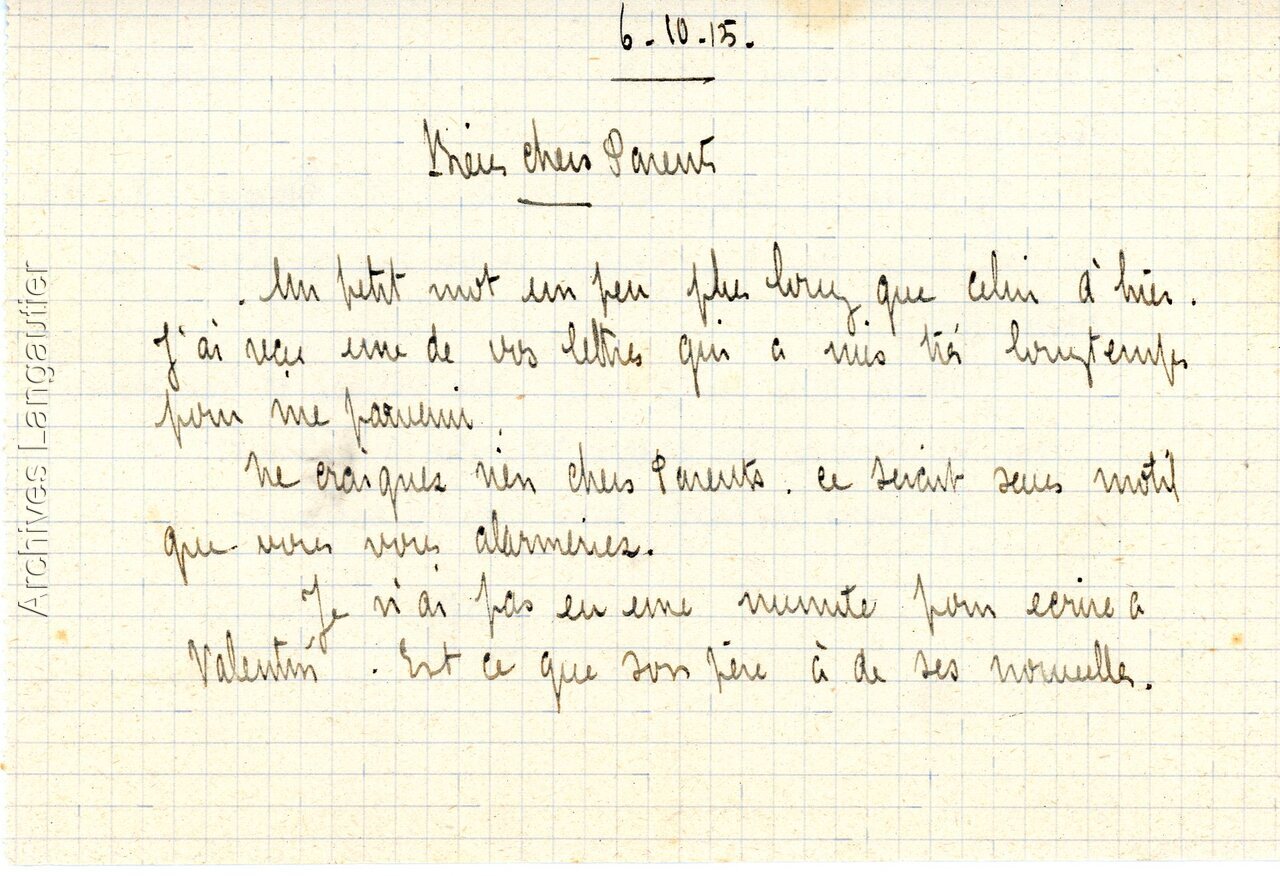 6-10-15.
Biens chers Parents
. Un petit mot un peu plus long que celui d'hier.
J'ai reçu une de vos lettres qui a mis très longtemps
pour me parvenir.
Ne craignez rien chers Parents. ce serait sans motif
que vous vous alarmeriez.
Je n'ai pas eu une minute pour ecrire a
Valentin. Est ce que son père à de ses nouvelles.
Archives Langautier